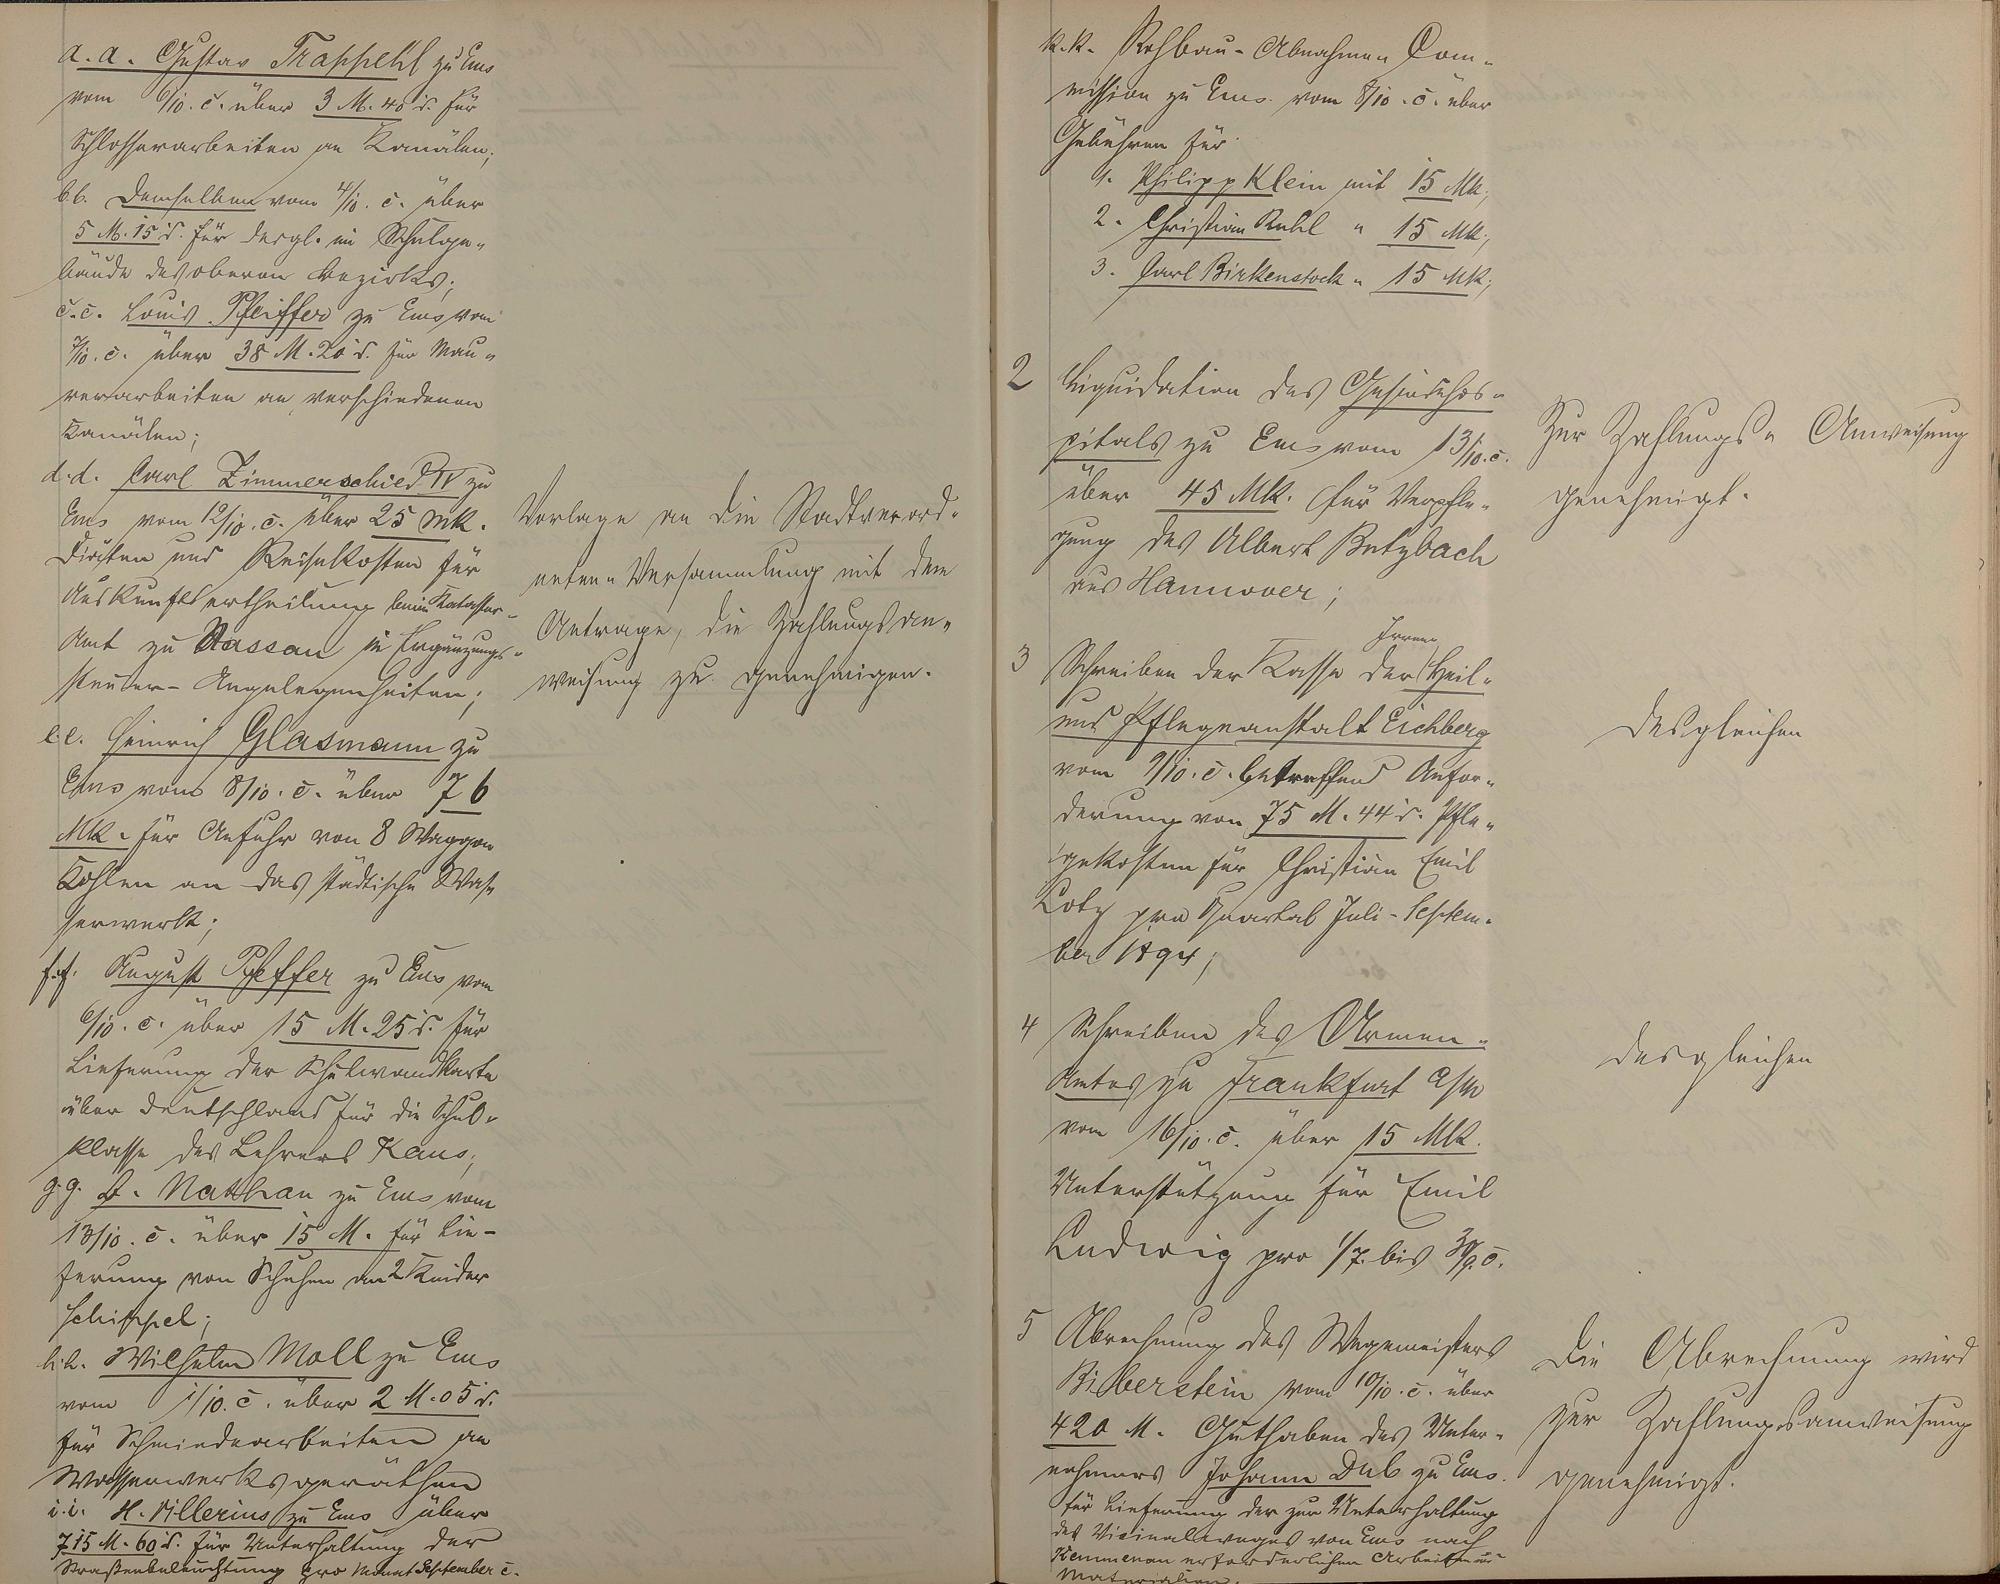 a.a. Gustav Trappehl zu Ems
vom 6/10. c. über 3 M. 40 d. für
Schlosserarbeiten an Kanälen;
b.b. Demselben vom 4/10. c. über
5 M. 15 d. für desgl. im Schulge-
bäude des oberen Bezirks;
c.c. Louis Pfeiffer zu Ems vom
7/10. c. über 38 M. 20 d. für Mau-
rerarbeiten an verschiedenen
Kanälen;
d.d. Carl Zimmerschied IV zu
Ems vom 12/10. c. über 25 Mk.
Diäten und Reisekosten für
Auskunftsertheilung beim Kataster-
Amt zu Nassau in Ergänzungs-
steuer-Angelegenheiten;
e.e. Heinrich Glasmann zu
Ems vom 8/10. c. über 76
Mk. für Anfuhr von 8 Waggon
Kohlen an das städtische Was-
serwerk;
f.f. August Pfeffer zu Ems vom
6/10. c. über 15 M. 25 d. für
Lieferung der Schulwandkarte
über Deutschland für die Schul-
klasse des Lehrers Kaus;
g.g. B. Nathan zu Ems vom
13/10. c. über 15 M. für Lie-
ferung von Schuhen an 2 Kinder
Schippel;
h.h. Wilhelm Moll zu Ems
vom 1/10. c. über 2 M. 05 d.
für Schmiedearbeiten an
Wasserwerksgeräthen
i.i. H. Villerius zu Ems über
715 M. 60 d. für Unterhaltung der
Straßenbeleuchtung pro Monat September c.
Vorlage an die Stadtverord-
neten-Versammlung mit dem
Antrage, die Zahlungsan-
weisung zu genehmigen.
k.k. Rohbau-Abnahme-Com-
mission zu Ems vom 8/10. c. über
Gebühren für
1. Philipp Klein mit 15 Mk;
2. Christian Ruhl " 15 Mk;
3. Carl Birkenstock " 15 Mk;
2 Liquidation des Gesindehos-
pitals zu Ems vom 13/10. c.
über 45 Mk. für Verpfle-
gung des Albert Butzbach
aus Hannover;
Zur Zahlungs-Anweisung
genehmigt.
3 Schreiben der Kasse der Irren Heil-
und Pflegeanstalt Eichberg
vom 9/10. c. betreffend Anfor-
derung von 75 M. 44 d. Pfle-
gekosten für Christian Emil
Lotz pro Quartal Juli-Septem-
ber 1894;
desgleichen
4 Schreiben des Armen-
Amtes zu Frankfurt a/M
vom 16/10. c. über 15 Mk.
Unterstützung für Emil
Ludwig pro 1/7. bis 30/9. c.
desgleichen
5 Abrechnung des Wegemeisters
Biberstein vom 10/10. c. über
420 M. Guthaben des Unter-
nehmers Johann Dub zu Ems.
für Lieferung der zur Unterhaltung
des Vicinalweges von Ems nach
Kemmenau erforderlichen Arbeiten u.
Materialien.
Die Abrechnung wird
zur Zahlungsanweisung
genehmigt.